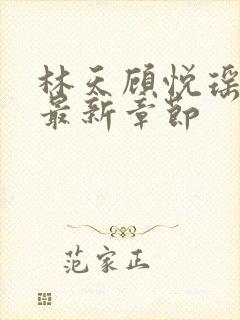 林天顾悦瑶
最新章节
范家正